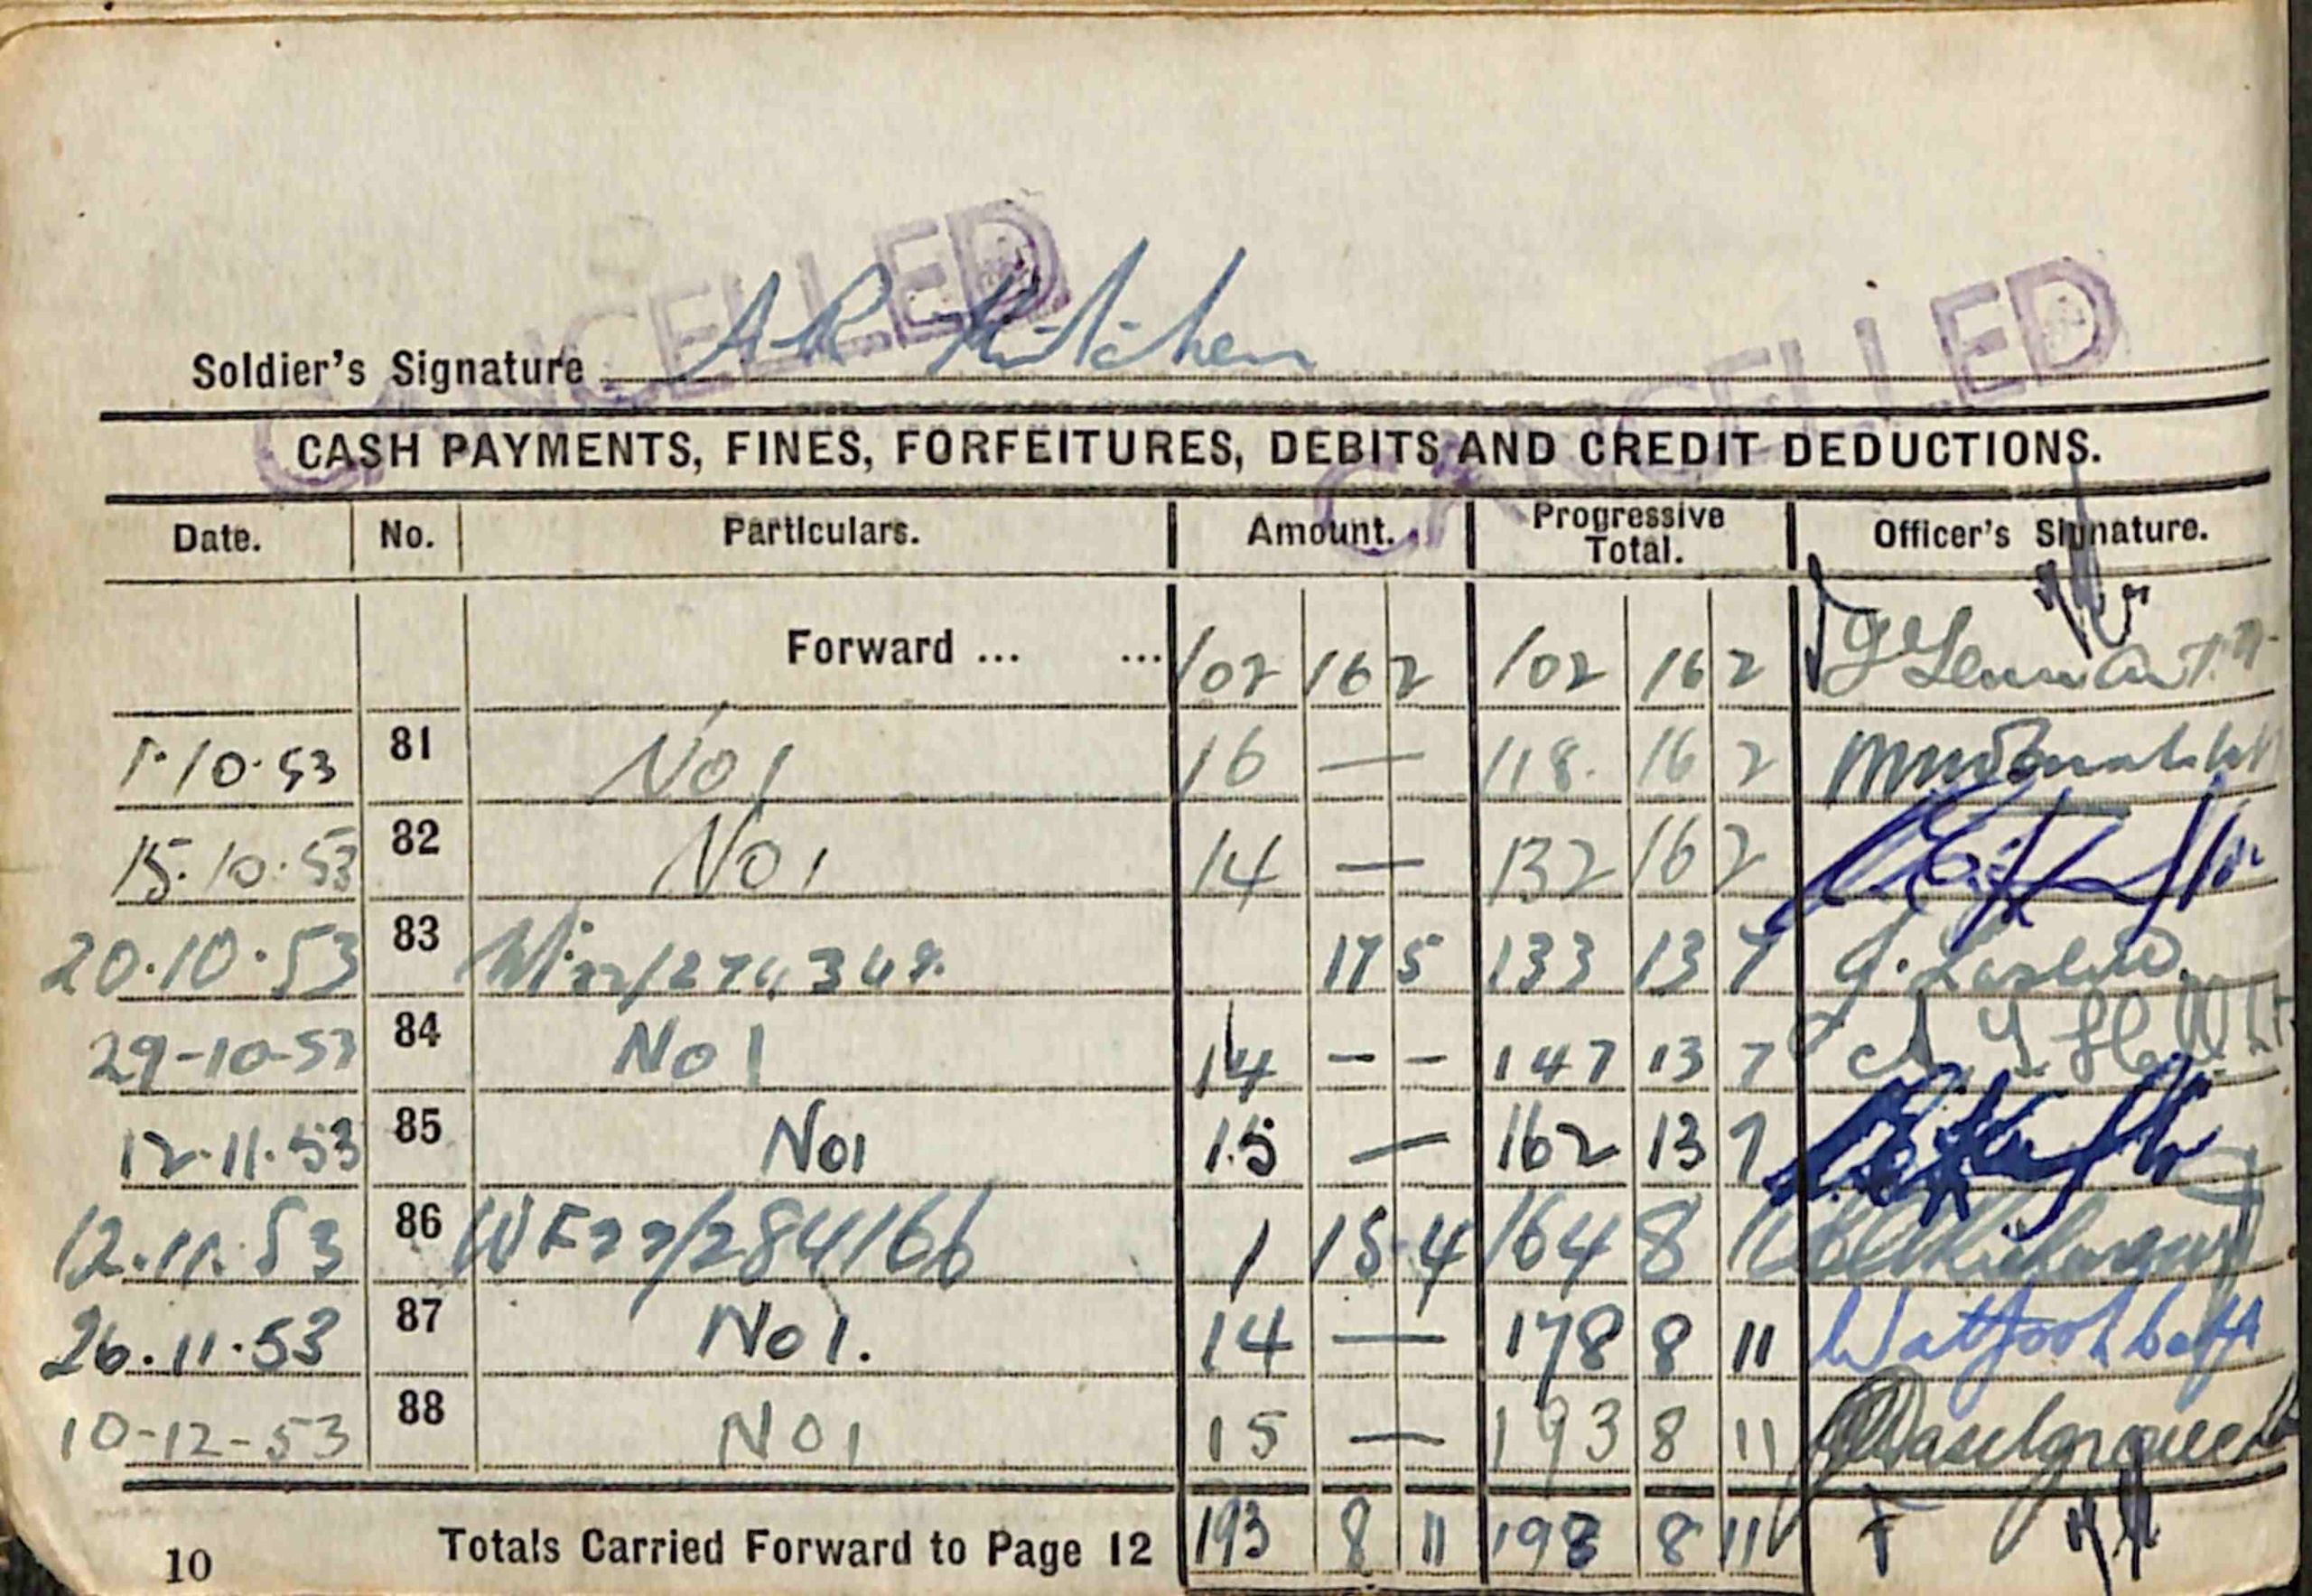 CANCELLED CANCELLED
Soldier's Signature A R Kitchen
CASH PAYMENTS, FINES, FORFEITURES, DEBITS AND CREDIT DEDUCTIONS.
Date. No. Particulars. Amount. Progressive Total. Officer's Signature.
Forward ... ... 102 16 2 102 16 2
1·10·53 81 No 1 16 — 118· 16 2
15·10·53 82 No 1 14 — 132 16 2
20·10·53 83 17 5 133 13 7
29-10-53 84 No 1 14 - - 147 13 7
12·11·53 85 No1 15 — 162 13 7
12·11·53 86 WF22/284166 1 15 4 164 8 11
26·11·53 87 No 1. 14 — 178 8 11
10-12-53 88 NO1 15 — 193 8 11
Totals Carried Forward to Page 12 193 8 11 193 8 11
10